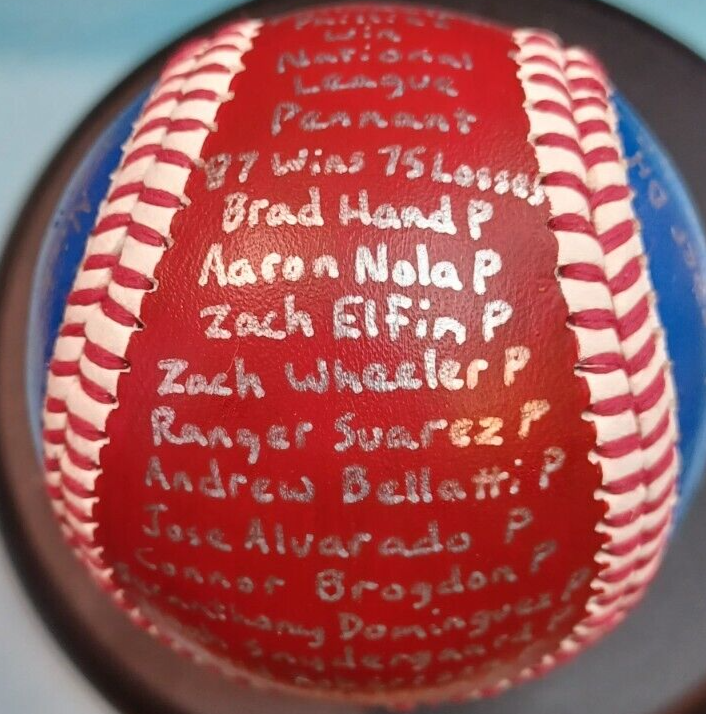 Phillies
Win
National
League
Pennant
87 Wins 75 Losses
Brad Hand P
Aaron Nola P
Zach Elfin P
Zach Wheeler P
Ranger Suarez P
Andrew Bellatti P
Jose Alvarado P
Connor Brogdon P
Seranthony Dominguez P
Snydergaard P